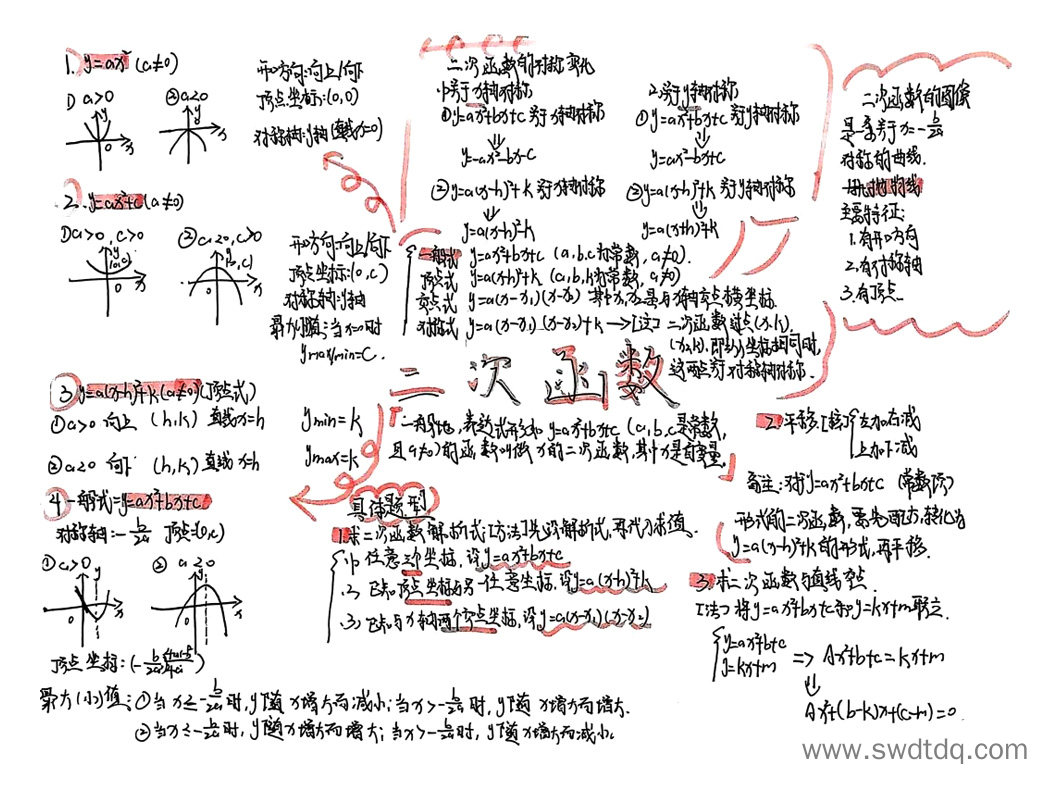 1. y=ax² (a≠0)
① a>0 ②a<0
开口方向:向上/向下
顶点坐标:(0,0)
对称轴:y轴(直线x=0)
2. y=ax²+c(a≠0)
①a>0,c>0 ②a<0,c>0
开口方向:向上/向下
顶点坐标:(0,c)
对称轴:y轴
最大/小值:当x=0时
ymax/min=c.
3 y=a(x-h)²+k(a≠0)(顶点式)
①a>0 向上 (h,k) 直线x=h
ymin=k
②a<0 向下 (h,k) 直线x=h
ymax=k
4 一般式=y=ax²+bx+c
对称轴:-b/2a 顶点:(0,c)
①a>0 ② a<0
顶点坐标:
最大(小)值:①当x≤-b/2a时,y随x增大而减小;当x>-b/2a时,y随x增大而增大.
②当x≤-b/2a时,y随x增大而增大;当x>-b/2a时,y随x增大而减小.
二次函数的对称变化
1.关于x轴对称
①y=ax²+bx+c关于x轴对称
y=-ax²-bx-c
②y=a(x-h)²+k关于x轴对称
y=-a(x-h)²-k
2.关于y轴对称
①y=ax²+bx+c关于y轴对称
y=ax²-bx+c
②y=a(x-h)²+k关于y轴对称
y=a(x+h)²+k
一般式 y=ax²+bx+c (a,b,c为常数,a≠0).
顶点式 y=a(x-h)²+k (a,b,h为常数,a≠0)
交点式 y=a(x-x₁)(x-x₂) 其中x₁,x₂是与x轴交点横坐标.
对称式 y=a(x-x₁)(x-x₂)+k →[这] 二次函数过点(x₁,k).
(x₂,k),即纵坐标相同时,
这两点关于对称轴对称.
二次函数
一般地,表达式形如y=ax²+bx+c (a,b,c是常数,
且a≠0)的函数叫做x的二次函数,其中x是自变量.
具体题型
1.求二次函数解析式:[方法]先设解析式,再代入求值.
1. 任意三个坐标,设y=ax²+bx+c
2. 已知顶点坐标与另一任意坐标,设y=a(x-h)²+k
3. 已知与x轴两个交点坐标,设y=a(x-x₁)(x-x₂)
二次函数的图像
是一条关于x=-b/2a
对称的曲线.
主要特征:
1.有开口方向
2.有对称轴
3.有顶点
2.平移[核]左加右减
上加下减
备注:对y=ax²+bx+c
形式的二次函数,要先配方,转化为
y=a(x-h)²+k的形式,再平移.
3.求二次函数与直线交点
[法]将y=ax²+bx+c和y=kx+m联立.
y=ax²+b+c
y=kx+m => Ax²+b+c=kx+m
Ax²+(b-k)x+(c-m)=0.
www.swdtdq.com